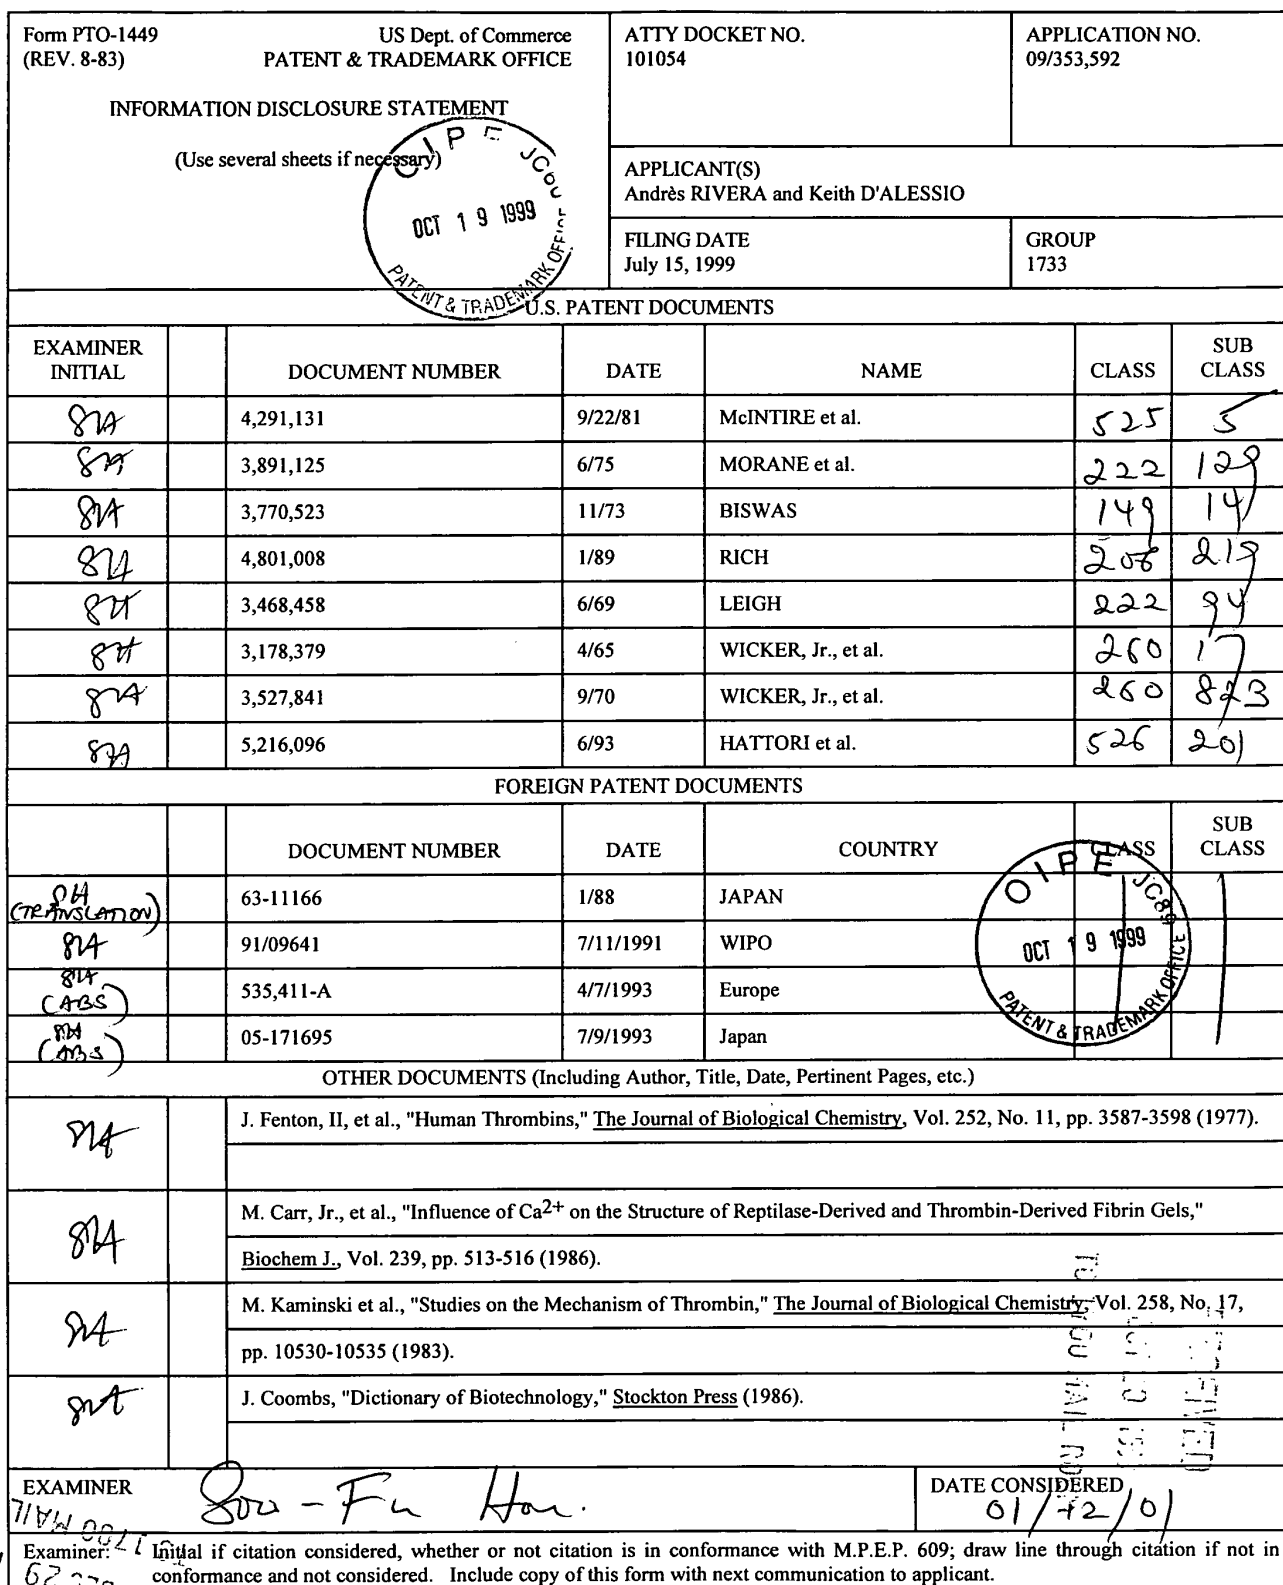 Form PTO-1449 US Dept. of Commerce
(REV. 8-83) PATENT & TRADEMARK OFFICE
INFORMATION DISCLOSURE STATEMENT
(Use several sheets if necessary)
OIPE
OCT 19 1999
PATENT & TRADEMARK OFFICE
ATTY DOCKET NO.
101054
APPLICATION NO.
09/353,592
APPLICANT(S)
Andrès RIVERA and Keith D'ALESSIO
FILING DATE
July 15, 1999
GROUP
1733
U.S. PATENT DOCUMENTS
EXAMINER INITIAL DOCUMENT NUMBER DATE NAME CLASS SUB CLASS
4,291,131 9/22/81 McINTIRE et al. 525 5
3,891,125 6/75 MORANE et al. 222 129
3,770,523 11/73 BISWAS 149 14
4,801,008 1/89 RICH 206 219
3,468,458 6/69 LEIGH 222 94
3,178,379 4/65 WICKER, Jr., et al. 260 17
3,527,841 9/70 WICKER, Jr., et al. 260 823
5,216,096 6/93 HATTORI et al. 526 201
FOREIGN PATENT DOCUMENTS
DOCUMENT NUMBER DATE COUNTRY CLASS SUB CLASS
(TRANSLATION) 63-11166 1/88 JAPAN
91/09641 7/11/1991 WIPO
(ABS) 535,411-A 4/7/1993 Europe
(ABS) 05-171695 7/9/1993 Japan
OIPE JC89
OCT 19 1999
PATENT & TRADEMARK OFFICE
OTHER DOCUMENTS (Including Author, Title, Date, Pertinent Pages, etc.)
J. Fenton, II, et al., "Human Thrombins," The Journal of Biological Chemistry, Vol. 252, No. 11, pp. 3587-3598 (1977).
M. Carr, Jr., et al., "Influence of Ca2+ on the Structure of Reptilase-Derived and Thrombin-Derived Fibrin Gels,"
Biochem J., Vol. 239, pp. 513-516 (1986).
M. Kaminski et al., "Studies on the Mechanism of Thrombin," The Journal of Biological Chemistry, Vol. 258, No. 17,
pp. 10530-10535 (1983).
J. Coombs, "Dictionary of Biotechnology," Stockton Press (1986).
EXAMINER
DATE CONSIDERED
Examiner: Initial if citation considered, whether or not citation is in conformance with M.P.E.P. 609; draw line through citation if not in
conformance and not considered. Include copy of this form with next communication to applicant.